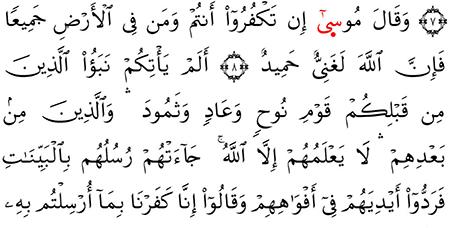 ﴿٧﴾ وَقَالَ مُوسَىٰٓ إِن تَكْفُرُوٓا۟ أَنتُمْ وَمَن فِى ٱلْأَرْضِ جَمِيعًا
فَإِنَّ ٱللَّهَ لَغَنِىٌّ حَمِيدٌ ﴿٨﴾ أَلَمْ يَأْتِكُمْ نَبَؤُا۟ ٱلَّذِينَ
مِن قَبْلِكُمْ قَوْمِ نُوحٍ وَعَادٍ وَثَمُودَ ۛ وَٱلَّذِينَ مِنۢ
بَعْدِهِمْ ۛ لَا يَعْلَمُهُمْ إِلَّا ٱللَّهُ ۚ جَآءَتْهُمْ رُسُلُهُم بِٱلْبَيِّنَـٰتِ
فَرَدُّوٓا۟ أَيْدِيَهُمْ فِىٓ أَفْوَٰهِهِمْ وَقَالُوٓا۟ إِنَّا كَفَرْنَا بِمَآ أُرْسِلْتُم بِهِۦ